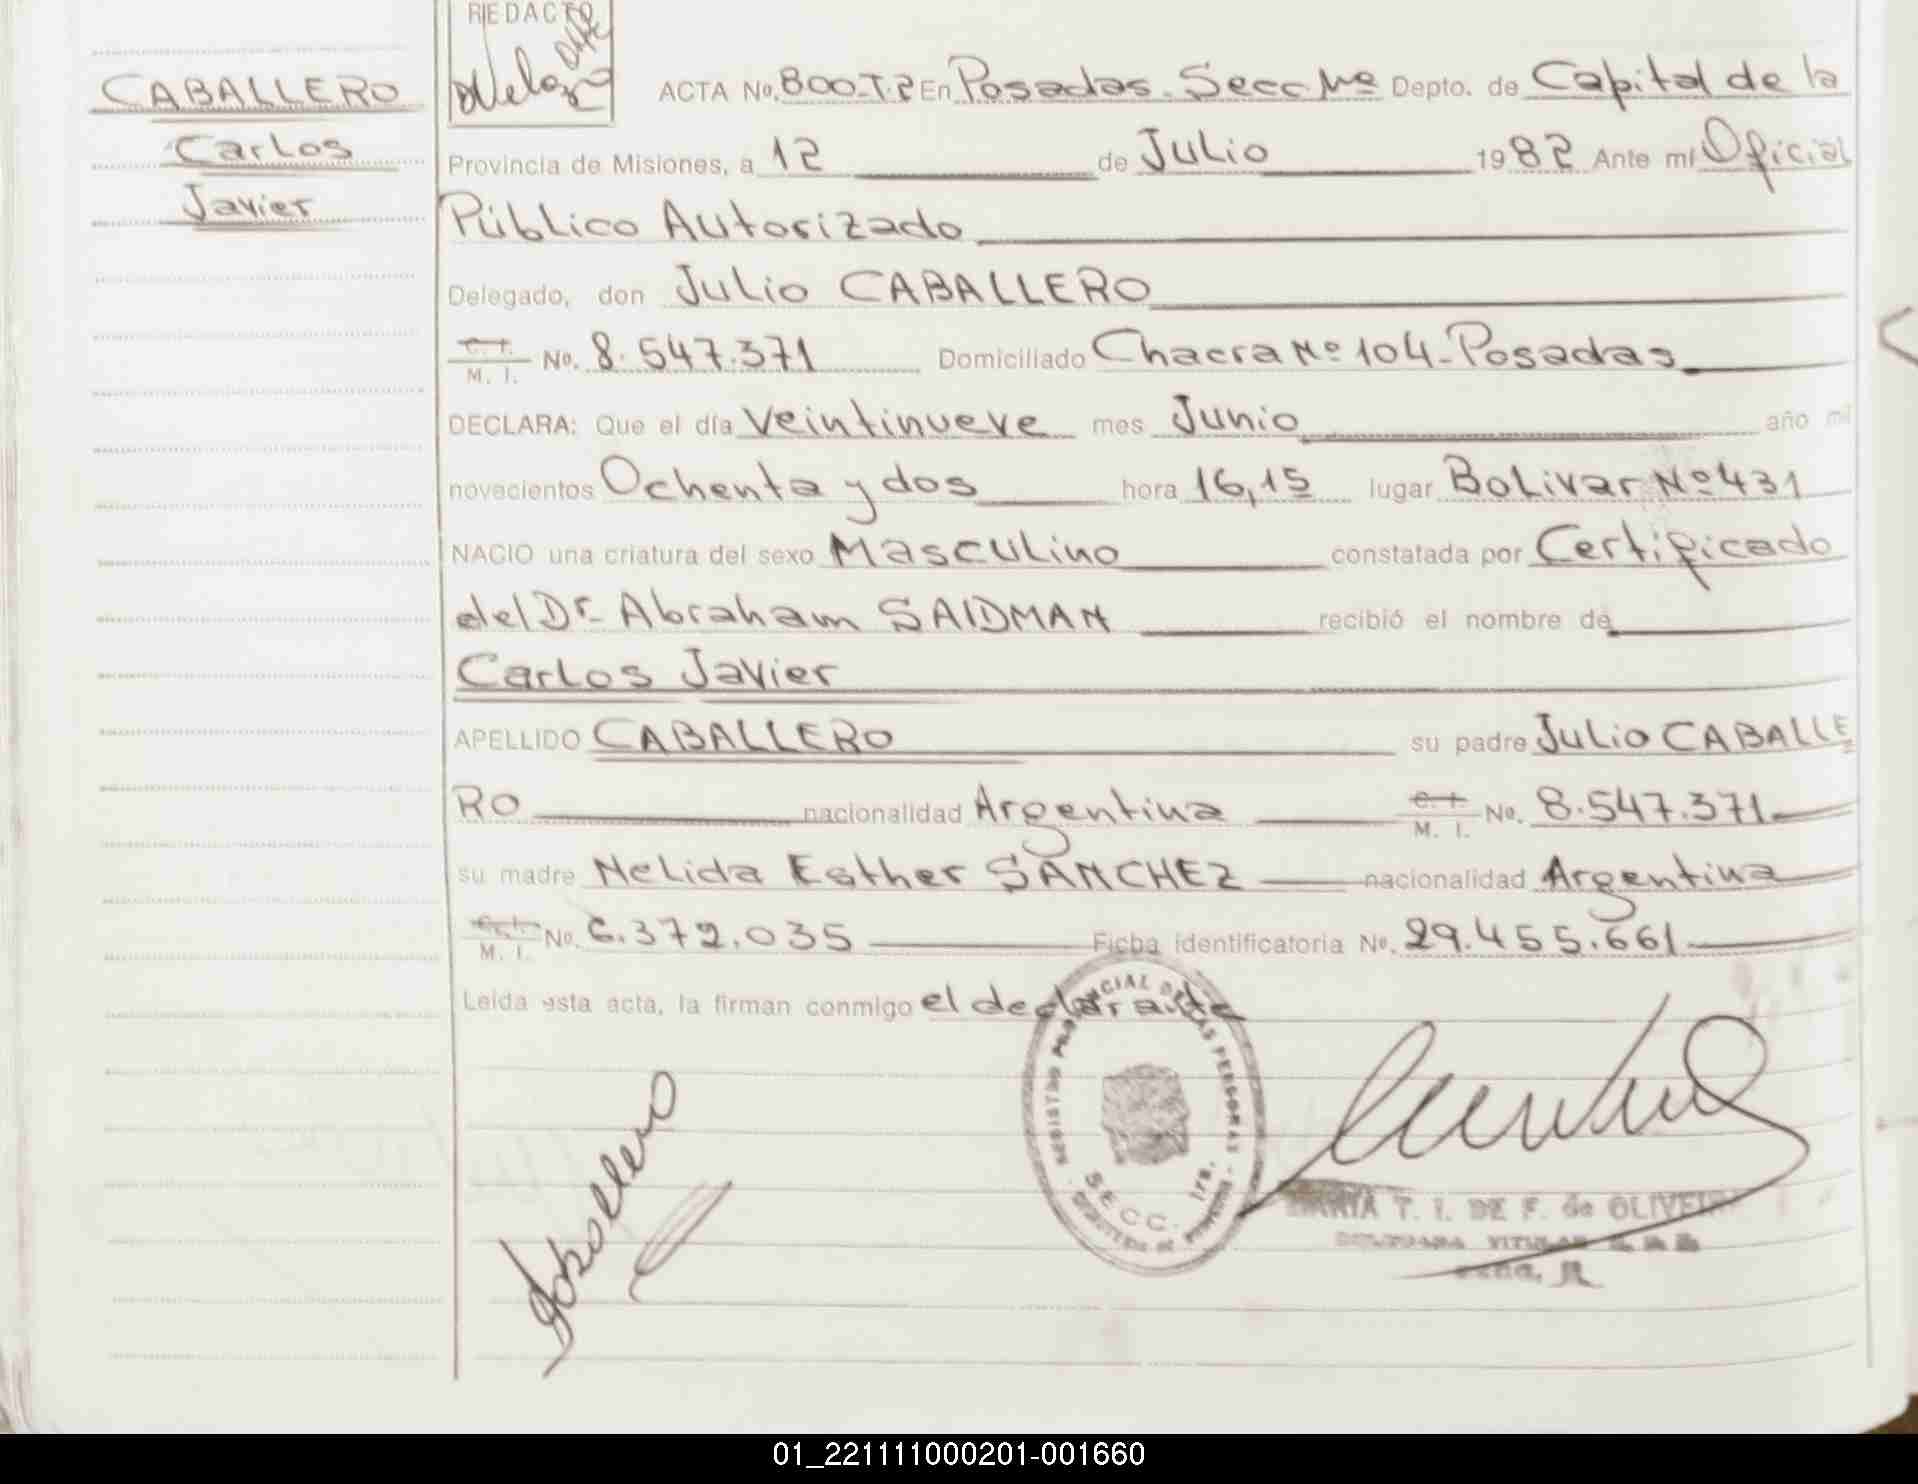 REDACTO
CABALLERO
Carlos
Javier
ACTA No. 800-T.2 En Posadas. Secc. Depto. de Capital de la
Provincia de Misiones, a 12 de Julio 1982 Ante mí Oficial
Público Autorizado
Delegado, don Julio CABALLERO
C. I.
M. I. No. 8.547.371 Domiciliado Chacra Nº 104-Posadas
DECLARA: Que el día Veintinueve mes Junio año mil
novecientos Ochenta y dos hora 16,15 lugar Bolivar Nº 431
NACIO una criatura del sexo Masculino constatada por Certificado
del Dr- Abraham SAIDMAN recibió el nombre de
Carlos Javier
APELLIDO CABALLERO su padre Julio CABALLE
RO nacionalidad Argentina C. I. M. I. No. 8.547.371
su madre Nelida Esther SANCHEZ nacionalidad Argentina
C. I. M. I. No. 6.372.035 Ficha identificatoria No. 29.455.661
Leída esta acta, la firman conmigo el declarante
PROVINCIAL DE LAS PERSONAS
SECC. 1ra.
MARIA T. I. DE F. de OLIVEIRA
01_221111000201-001660